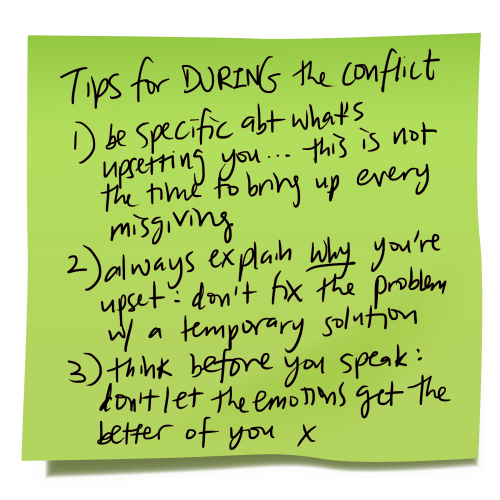 Tips for DURING the conflict
1) be specific abt what's
upsetting you... this is not
the time to bring up every
misgiving
2) always explain why you're
upset: don't fix the problem
w/ a temporary solution
3) think before you speak:
don't let the emotions get the
better of you x